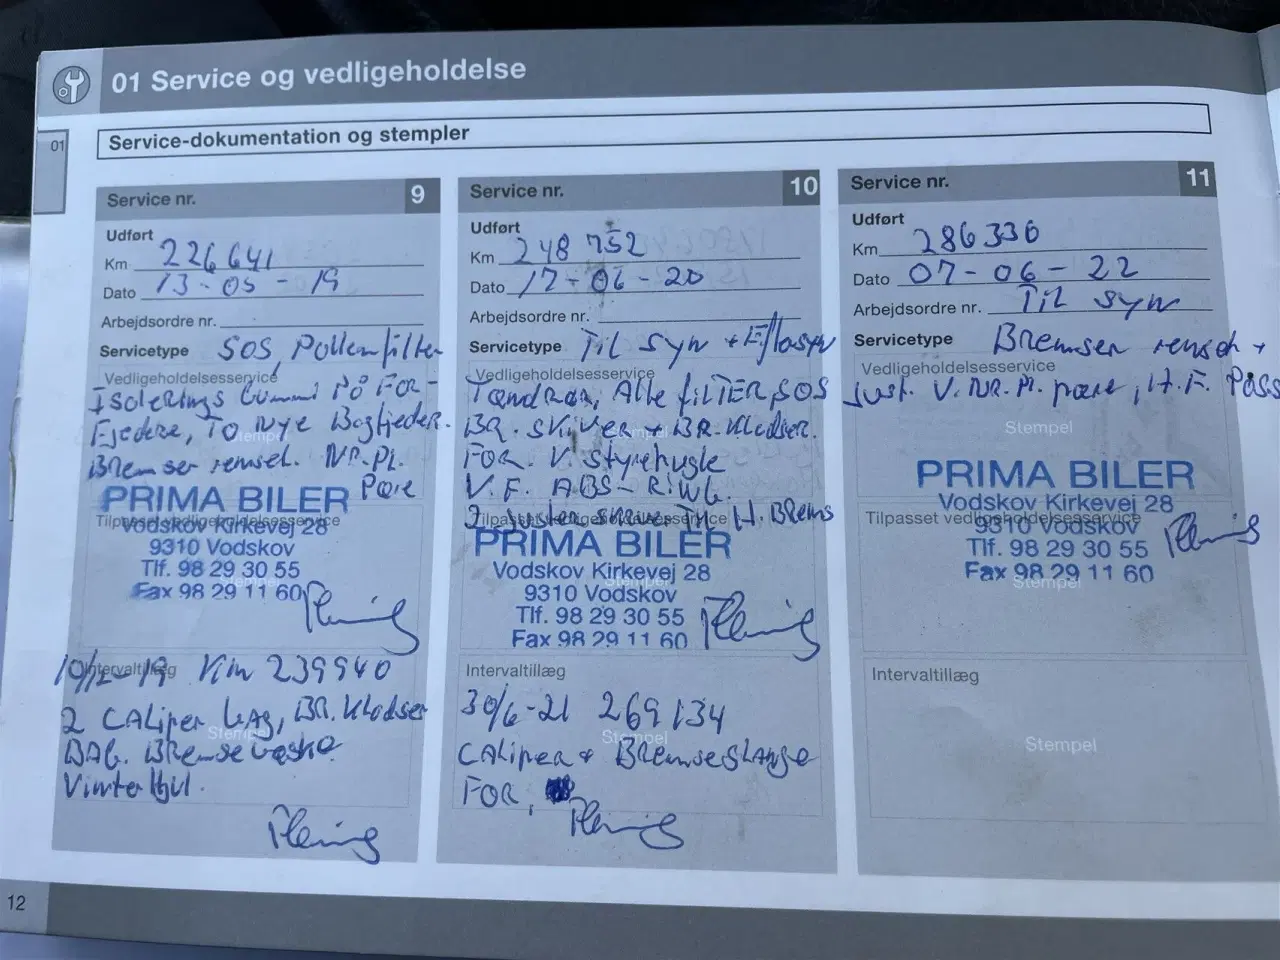 01 Service og vedligeholdelse
01
Service-dokumentation og stempler
Service nr. 9
Udført
Km 226641
Dato 13-05-19
Arbejdsordre nr.
Servicetype SOS Pollenfilter
Vedligeholdelsesservice
Isolerings Gummi På FOR-
Fjedere, To Nye Bagfjeder.
Stempel
Bremser rensel. NR.Pl.
Pære
PRIMA BILER
Tilpasset vedligeholdelsesservice
Vodskov Kirkevej 28
9310 Vodskov
Tlf. 98 29 30 55
Stempel
Fax 98 29 11 60
Fleming
Intervaltillæg
10/12-19 Km 239940
2 CALiper bAg, BR. Klodser
Stempel
BAG. Bremsevæske.
Vinterhjul.
Fleming
Service nr. 10
Udført
Km 248 752
Dato 17-06-20
Arbejdsordre nr.
Servicetype Til syn + E/losyn
Vedligeholdelsesservice
Tandrem, Alle fILTER, SOS
BR. skiver + BR. Klodser.
Stempel
FOR. V. styrekugle
V. F. ABS-Ring.
2 juster skruer Til H. Brems
Tilpasset vedligeholdelsesservice
PRIMA BILER
Vodskov Kirkevej 28
Stempel
9310 Vodskov
Tlf. 98 29 30 55
Fax 98 29 11 60
Fleming
Intervaltillæg
30/6-21 269134
Stempel
CALiper + Bremseslange
FOR,
Fleming
Service nr. 11
Udført
Km 286336
Dato 07-06-22
Arbejdsordre nr. Til syn
Servicetype Bremser rensel +
Vedligeholdelsesservice
Just. V. NR. Pl. pære, H. F. Pass
Stempel
PRIMA BILER
Vodskov Kirkevej 28
Tilpasset vedligeholdelsesservice
9310 Vodskov
Tlf. 98 29 30 55
Fax 98 29 11 60
Stempel
Fleming
Intervaltillæg
Stempel
12